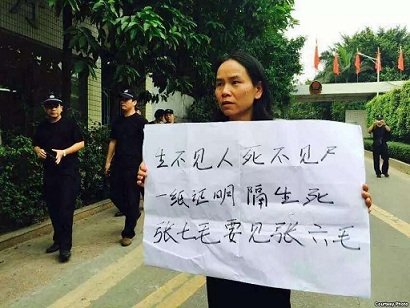 生不见人死不见尸
一纸证明隔生死
张七毛要见张六毛
Courtesy Photo